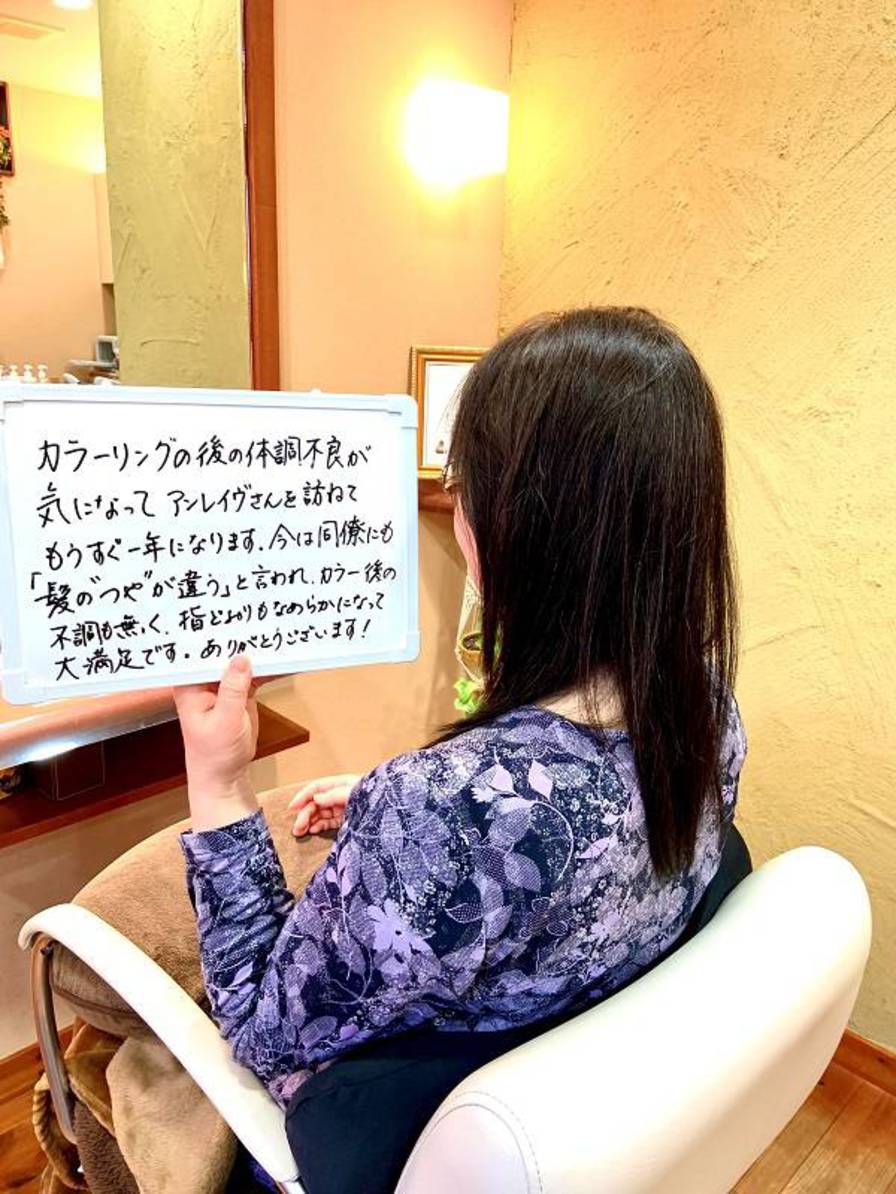 カラーリングの後の体調不良が
気になって アンレイヴさんを訪ねて
もうすぐ一年になります。今は同僚にも
「髪の"つや"が違う」と言われ、カラー後の
不調も無く、指どおりもなめらかになって
大満足です。ありがとうございます!